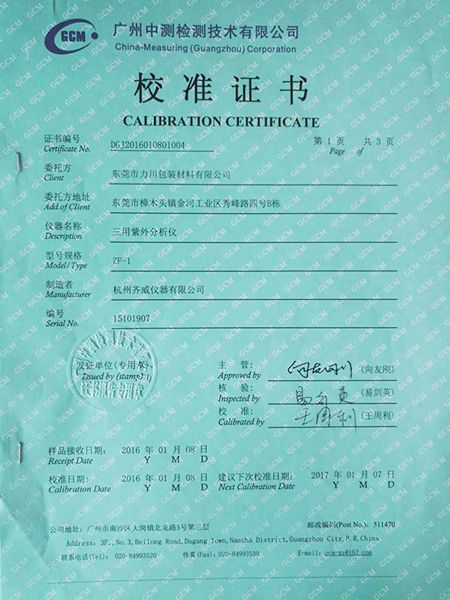 GCM
广州中测检测技术有限公司
China-Measuring (Guangzhou) Corporation
校准证书
CALIBRATION CERTIFICATE
证书编号 DGJ2016010801004 第 1 页 共 3 页
Certificate No. Page of
委托方 东莞市力川包装材料有限公司
Client
委托方地址 东莞市樟木头镇金河工业区秀峰路四号B栋
Add.of Client
仪器名称 三用紫外分析仪
Description
型号规格 ZF-1
Model/Type
制造者 杭州齐威仪器有限公司
Manufacturer
编号 15101907
Serial No.
发证单位(专用章)
Issued by (stamp)
主管: (向友刚)
Approved by
核验: (易剑英)
Inspected by
校准: 王周利 (王周利)
Calibrated by
样品接收日期: 2016 年 01 月 08 日
Receipt Date Y M D
校准日期: 2016 年 01 月 08 日 建议下次校准日期: 2017 年 01 月 07 日
Calibration Date Y M D Next Calibration Date Y M D
公司地址: 广州市南沙区大岗镇北龙路3号第三层 邮政编码(Post No.): 511470
Address: 3F.,No.3,Beilong Road,Dagang Town,Nansha District,Guangzhou City,P.R.China
联系电话(Tel): 020-84993520 传真(Fax): 020-84993530 E-mail: gcm-gz@163.com